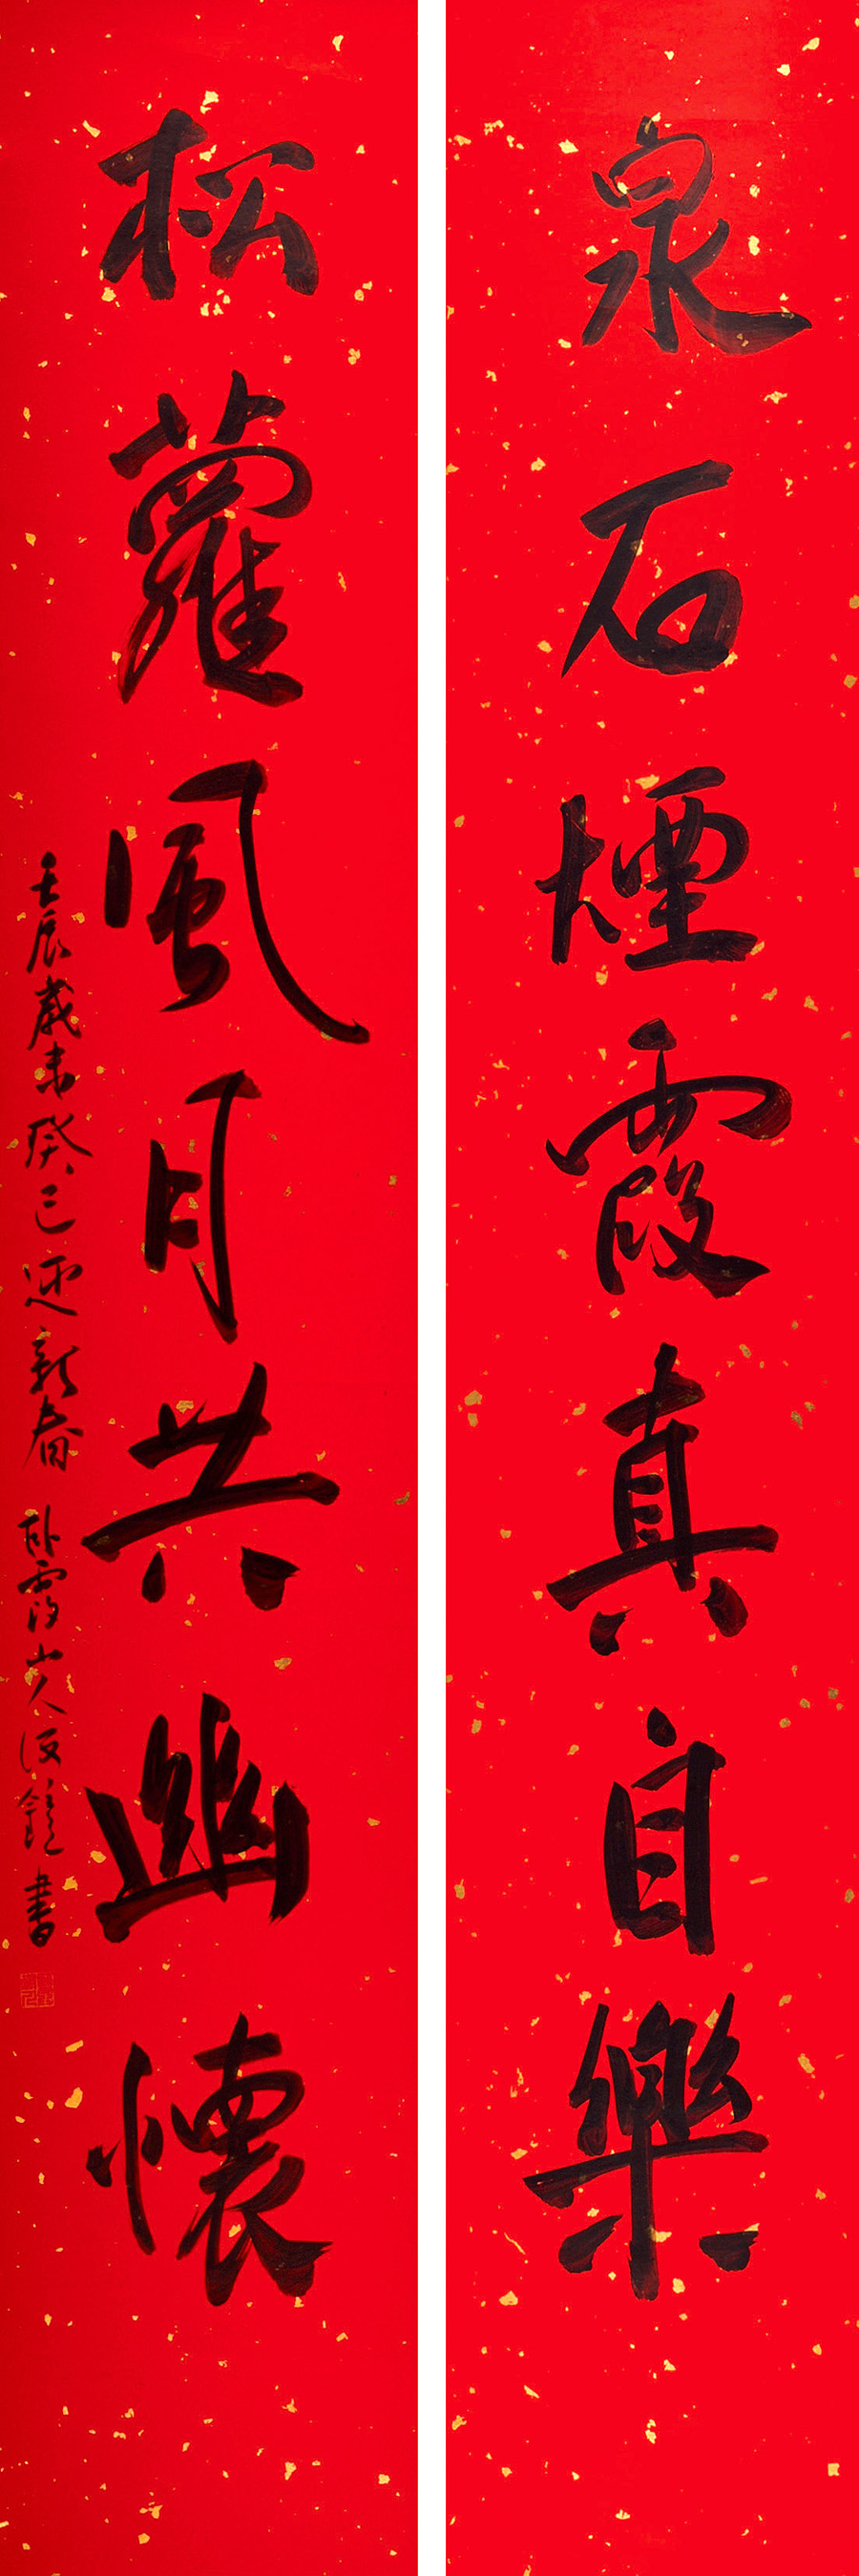 泉石煙霞真自樂
松蘿風月共幽懷
壬辰歲末癸巳迎新春 卧霞山人漢鐘書